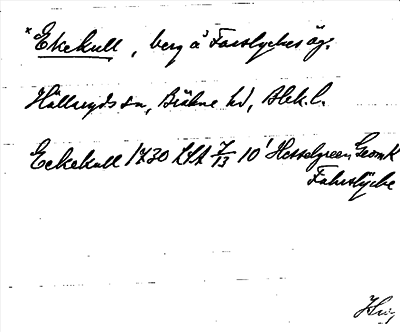 *Ekekull, berg å Farslyckes äg.
Hällaryds sn, Bräkne hd, Blek.l.
Eckekull 1730 LSA 7/13 10' Hesselgreen Geom K
Fahrslÿcke